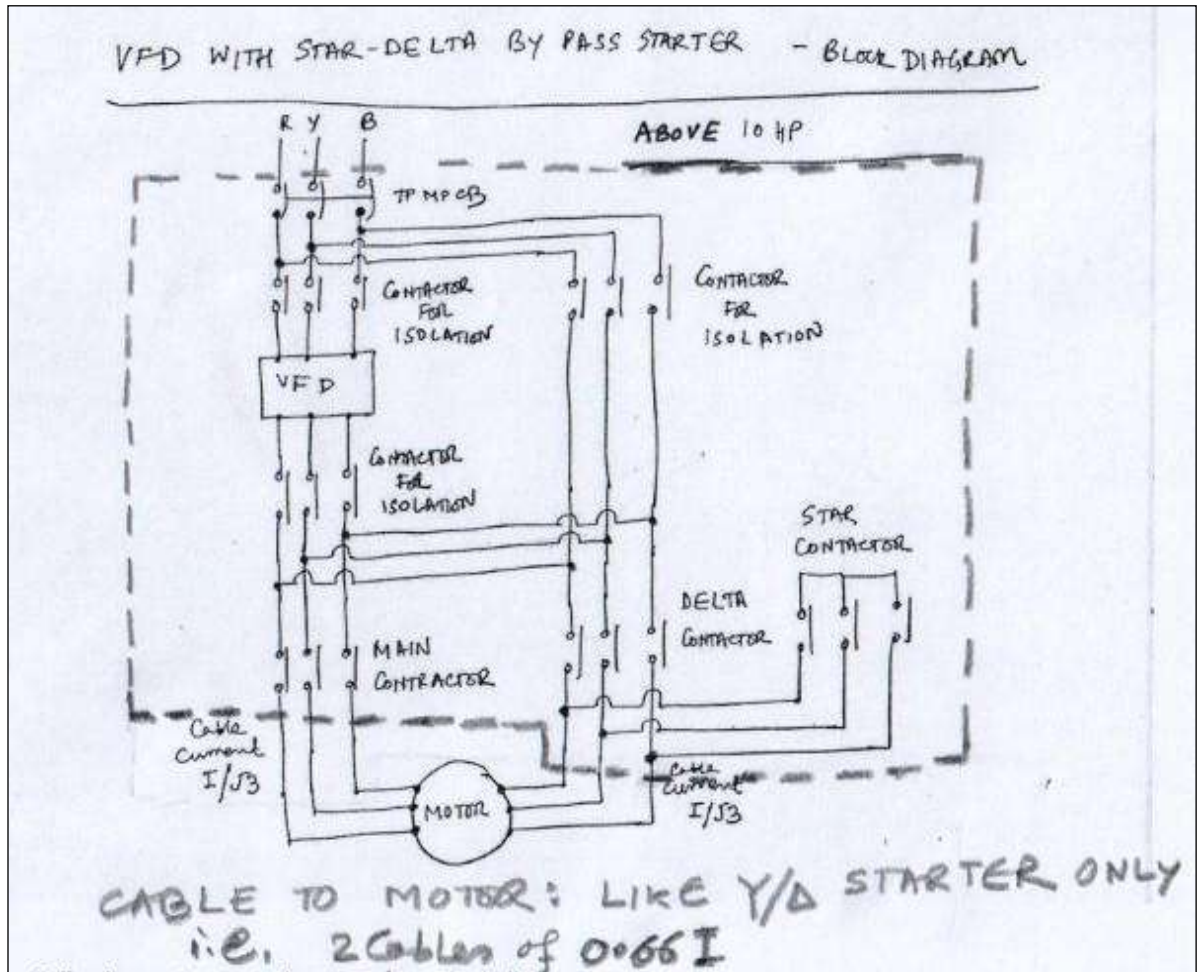 VFD WITH STAR-DELTA BY PASS STARTER - BLOCK DIAGRAM
R Y B
ABOVE 10 HP
TP MPCB
CONTACTOR
FOR
ISOLATION
CONTACTOR
FOR
ISOLATION
VFD
CONTACTOR
FOR
ISOLATION
STAR
CONTACTOR
DELTA
CONTACTOR
MAIN
CONTRACTOR
Cable
current
I/√3
MOTOR
Cable
current
I/√3
CABLE TO MOTOR: LIKE Y/Δ STARTER ONLY
i.e. 2 Cables of 0.66 I